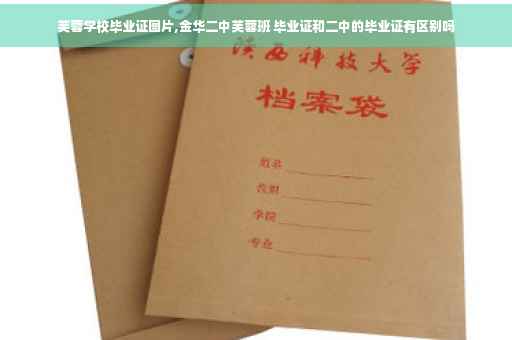 芙蓉学校毕业证图片,金华二中芙蓉班 毕业证和二中的毕业证有区别吗
陕西科技大学
档案袋
姓名
学院
专业